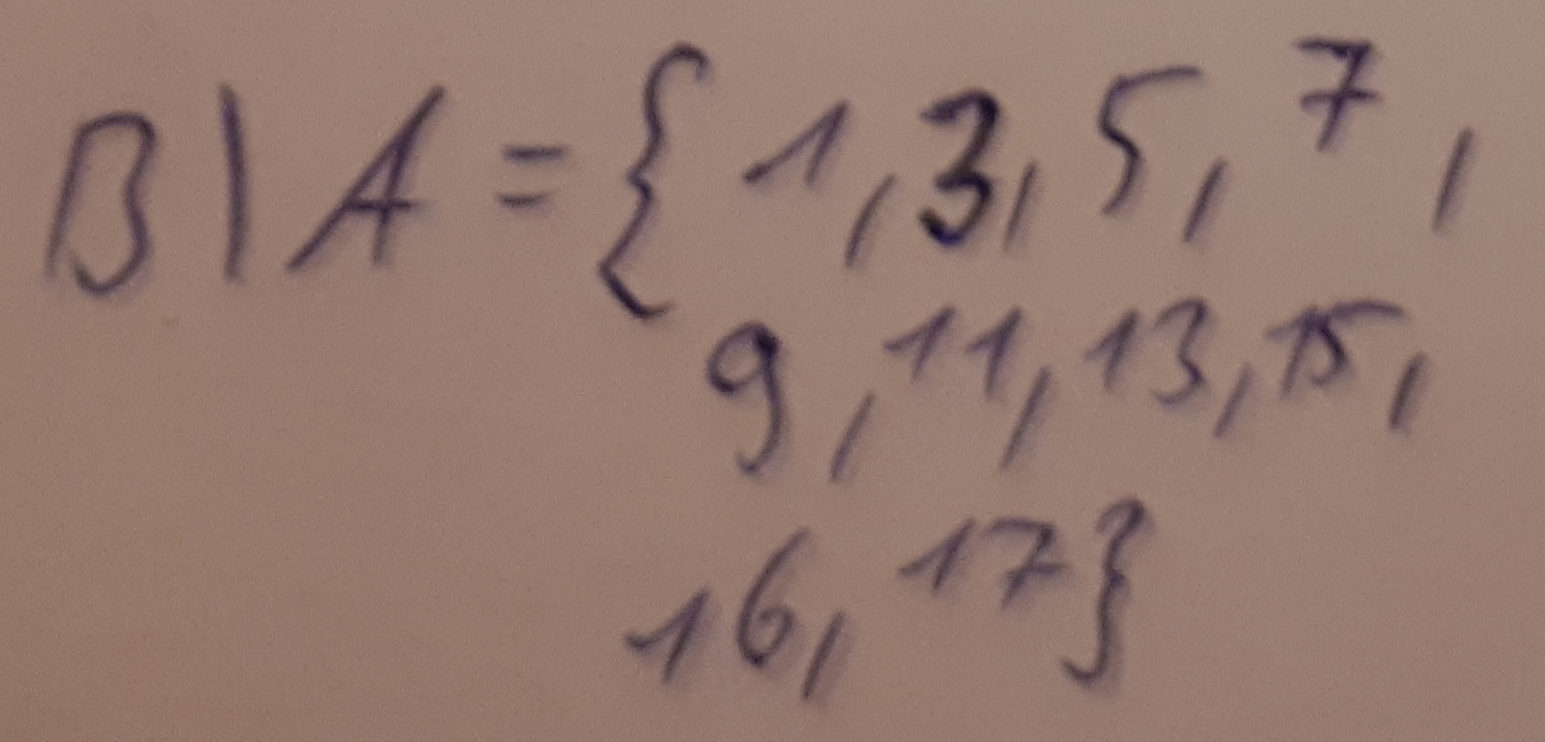 B \ A = { 1, 3, 5, 7,
9, 11, 13, 15,
16, 17}